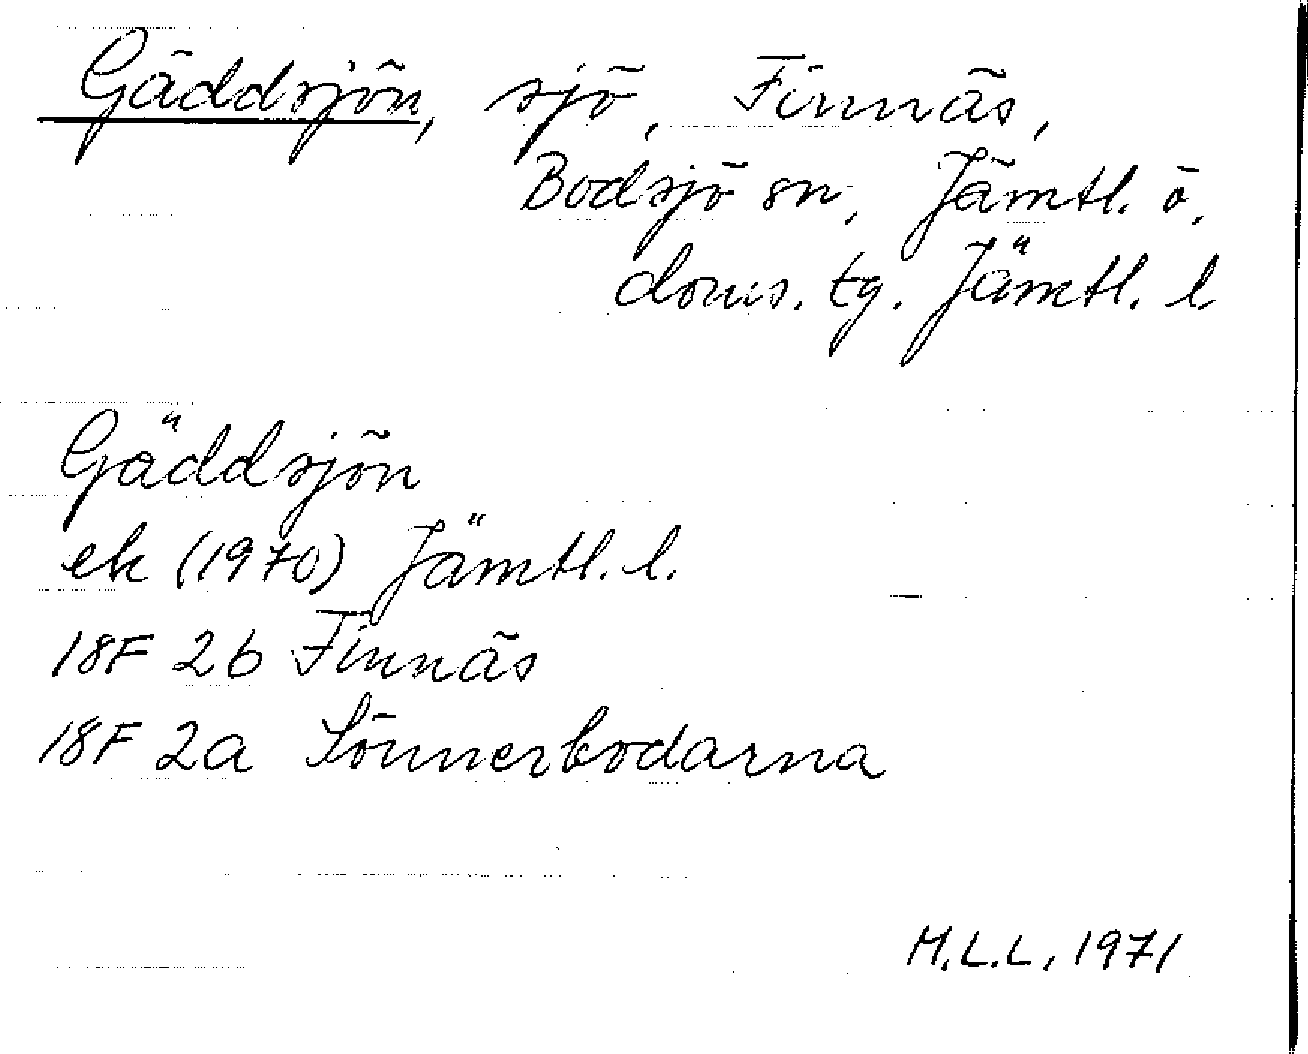 Gäddsjön, sjö, Finnäs,
Bodsjö sn, Jämtl. ö.
doms. tg. Jämtl. l
Gäddsjön
ek (1970) Jämtl. l.
18F 2b Finnäs
18F 2a Sönnerbodarna
M.L.L, 1971